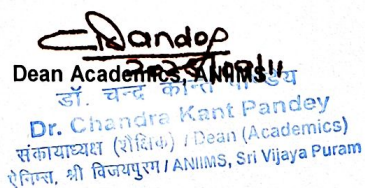 Dean Academics, ANIIMS
डॉ. चन्द्र कान्त पाण्डेय
Dr. Chandra Kant Pandey
संकायाध्यक्ष (शैक्षिक) / Dean (Academics)
ऐनिम्स, श्री विजयपुरम / ANIIMS, Sri Vijaya Puram